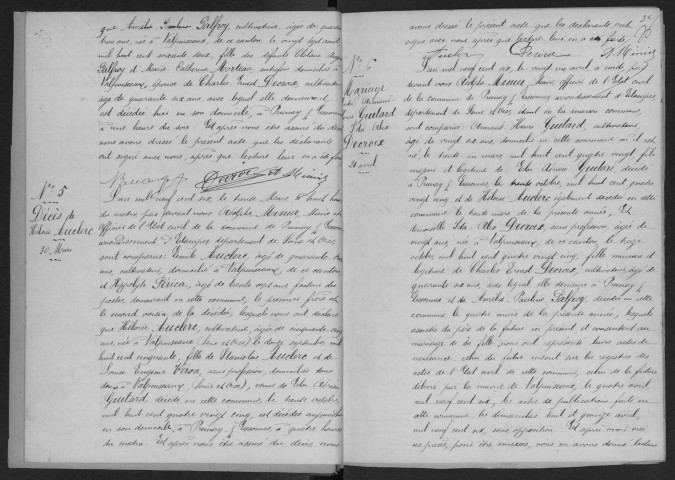 que Amélie Pauline Palfroy, cultivatrice, âgée de quarante
trois ans, née à Valpuiseaux, de ce canton, le vingt sept avril
mil huit cent soixante trois, fille des défunts
Palfroy et Marie Catherine domiciliés à
Valpuiseaux, épouse de Charles Ernest Decroix, cultivateur
âgé de quarante six ans avec lequel elle demeurait
est décédée hier en son domicile, à Prunay s/ Essonnes
à une heure du soir. Et après nous être assuré du décès
nous avons dressé le présent acte que les déclarants
ont signé avec nous, après que lecture leur en a été faite
N° 5
Décès de
Héloïse Auclerc
30 Mars
L'an mil neuf cent six, le trente Mars à huit heures
du matin, par devant nous Adolphe Minier Maire et
officier de l'Etat civil de la commune de Prunay s/ Essonnes
arrondissement d'Etampes, département de Seine et Oise,
sont comparus Emile Auclerc, âgé de quarante
ans, cultivateur, domicilié à Valpuiseaux, de ce canton
et Hippolyte Périca, âgé de trente sept ans facteur des
postes, demeurant en cette commune, le premier frère et
le second voisin de la décédée, lesquels nous ont déclaré
que Héloïse Auclerc, cultivatrice, âgée de cinquante cinq
ans, née à Valpuiseaux (Seine et Oise) le douze septembre mil
huit cent cinquante, fille de Stanislas Auclerc et de
Louise Eugénie Héron, sans profession, domiciliés tous
deux à Valpuiseaux (Seine et Oise), veuve de Adrien
Guitard décédé en cette commune le trente octobre
mil huit cent quatre vingt cinq, est décédée aujourd'hui
en son domicile, à Prunay s/ Essonnes, à quatre heures
du matin. Et après nous être assuré du décès nous
avons dressé le présent acte que les déclarants ont
signé avec nous après que lecture leur en a été faite
Auclerc Périca A. Minier
N° 6
Mariage
Guitard
et
Decroix
21 avril
L'an mil neuf cent six, le vingt un avril à midi par
devant nous Adolphe Minier, Maire, officier de l'Etat civil
de la commune de Prunay s/ Essonnes arrondissement d'Etampes
département de Seine et Oise, dont en la maison commune,
sont comparus: Armand Henri Guitard, cultivateur,
âgé de vingt six ans, domicilié en cette commune où il est
né le trente un mars mil huit cent quatre vingt, fils
majeur et légitime de Adrien Guitard décédé
à Prunay s/ Essonnes, le trente octobre, mil huit cent quatre
vingt cinq et de Héloïse Auclerc également décédée en cette
commune le trente mars de la présente année, Et
demoiselle Decroix, sans profession âgée de
vingt ans, née à Valpuiseaux, de ce canton, le treize
octobre mil huit cent quatre vingt cinq, fille mineure et
légitime de Charles Ernest Decroix, cultivateur âgé de
quarante six ans, avec lequel elle demeure à Prunay s/
Essonnes et de Amélie Pauline Palfroy, décédée en cette
commune le quatre mars de la présente année, lesquels
assistés du père de la future ici présent et consentant au
mariage de sa fille, nous ont représenté leurs actes de
naissance, celui du futur inscrit sur les registres des
actes de l'Etat civil de cette commune, celui de la future
délivré par la mairie de Valpuiseaux, le quatre avril
mil neuf cent six, les actes de publications faites en
cette commune, les dimanches huit et quinze avril
mil neuf cent six, sans opposition. Et après avoir visé
ces pièces, pour être annexées, nous en avons donné lecture